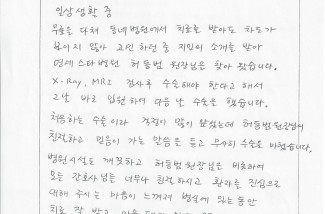 일상생활 중
무릎을 다쳐 동네병원에서 치료를 받아도 차도가
보이지 않아 고민하던 중 지인의 소개를 받아
연세스타병원 허동범 원장님을 찾아 왔습니다.
X-Ray, MRI 검사후 수술해야 한다고 해서
그날 바로 입원하여 다음날 수술을 했습니다.
처음하는 수술이라 걱정이 많이 었었는데 허동범 원장님이
친절하고 믿음이 가는 말씀을 듣고 무사히 수술을 마쳤습니다.
병원시설도 깨끗하고 허동범 원장님을 비롯하여
모든 간호사님은 너무나 친절하시고 환자를 진심으로
대해 주시는 마음이 느껴져 병실에 있는동안
치료 잘 받고